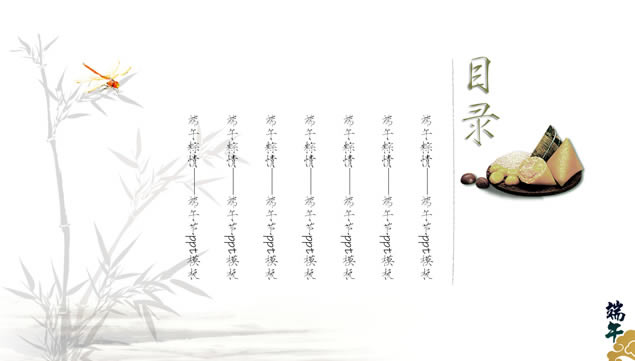 目录
端午粽情——端午节ppt模板
端午粽情——端午节ppt模板
端午粽情——端午节ppt模板
端午粽情——端午节ppt模板
端午粽情——端午节ppt模板
端午粽情——端午节ppt模板
端午粽情——端午节ppt模板
端午